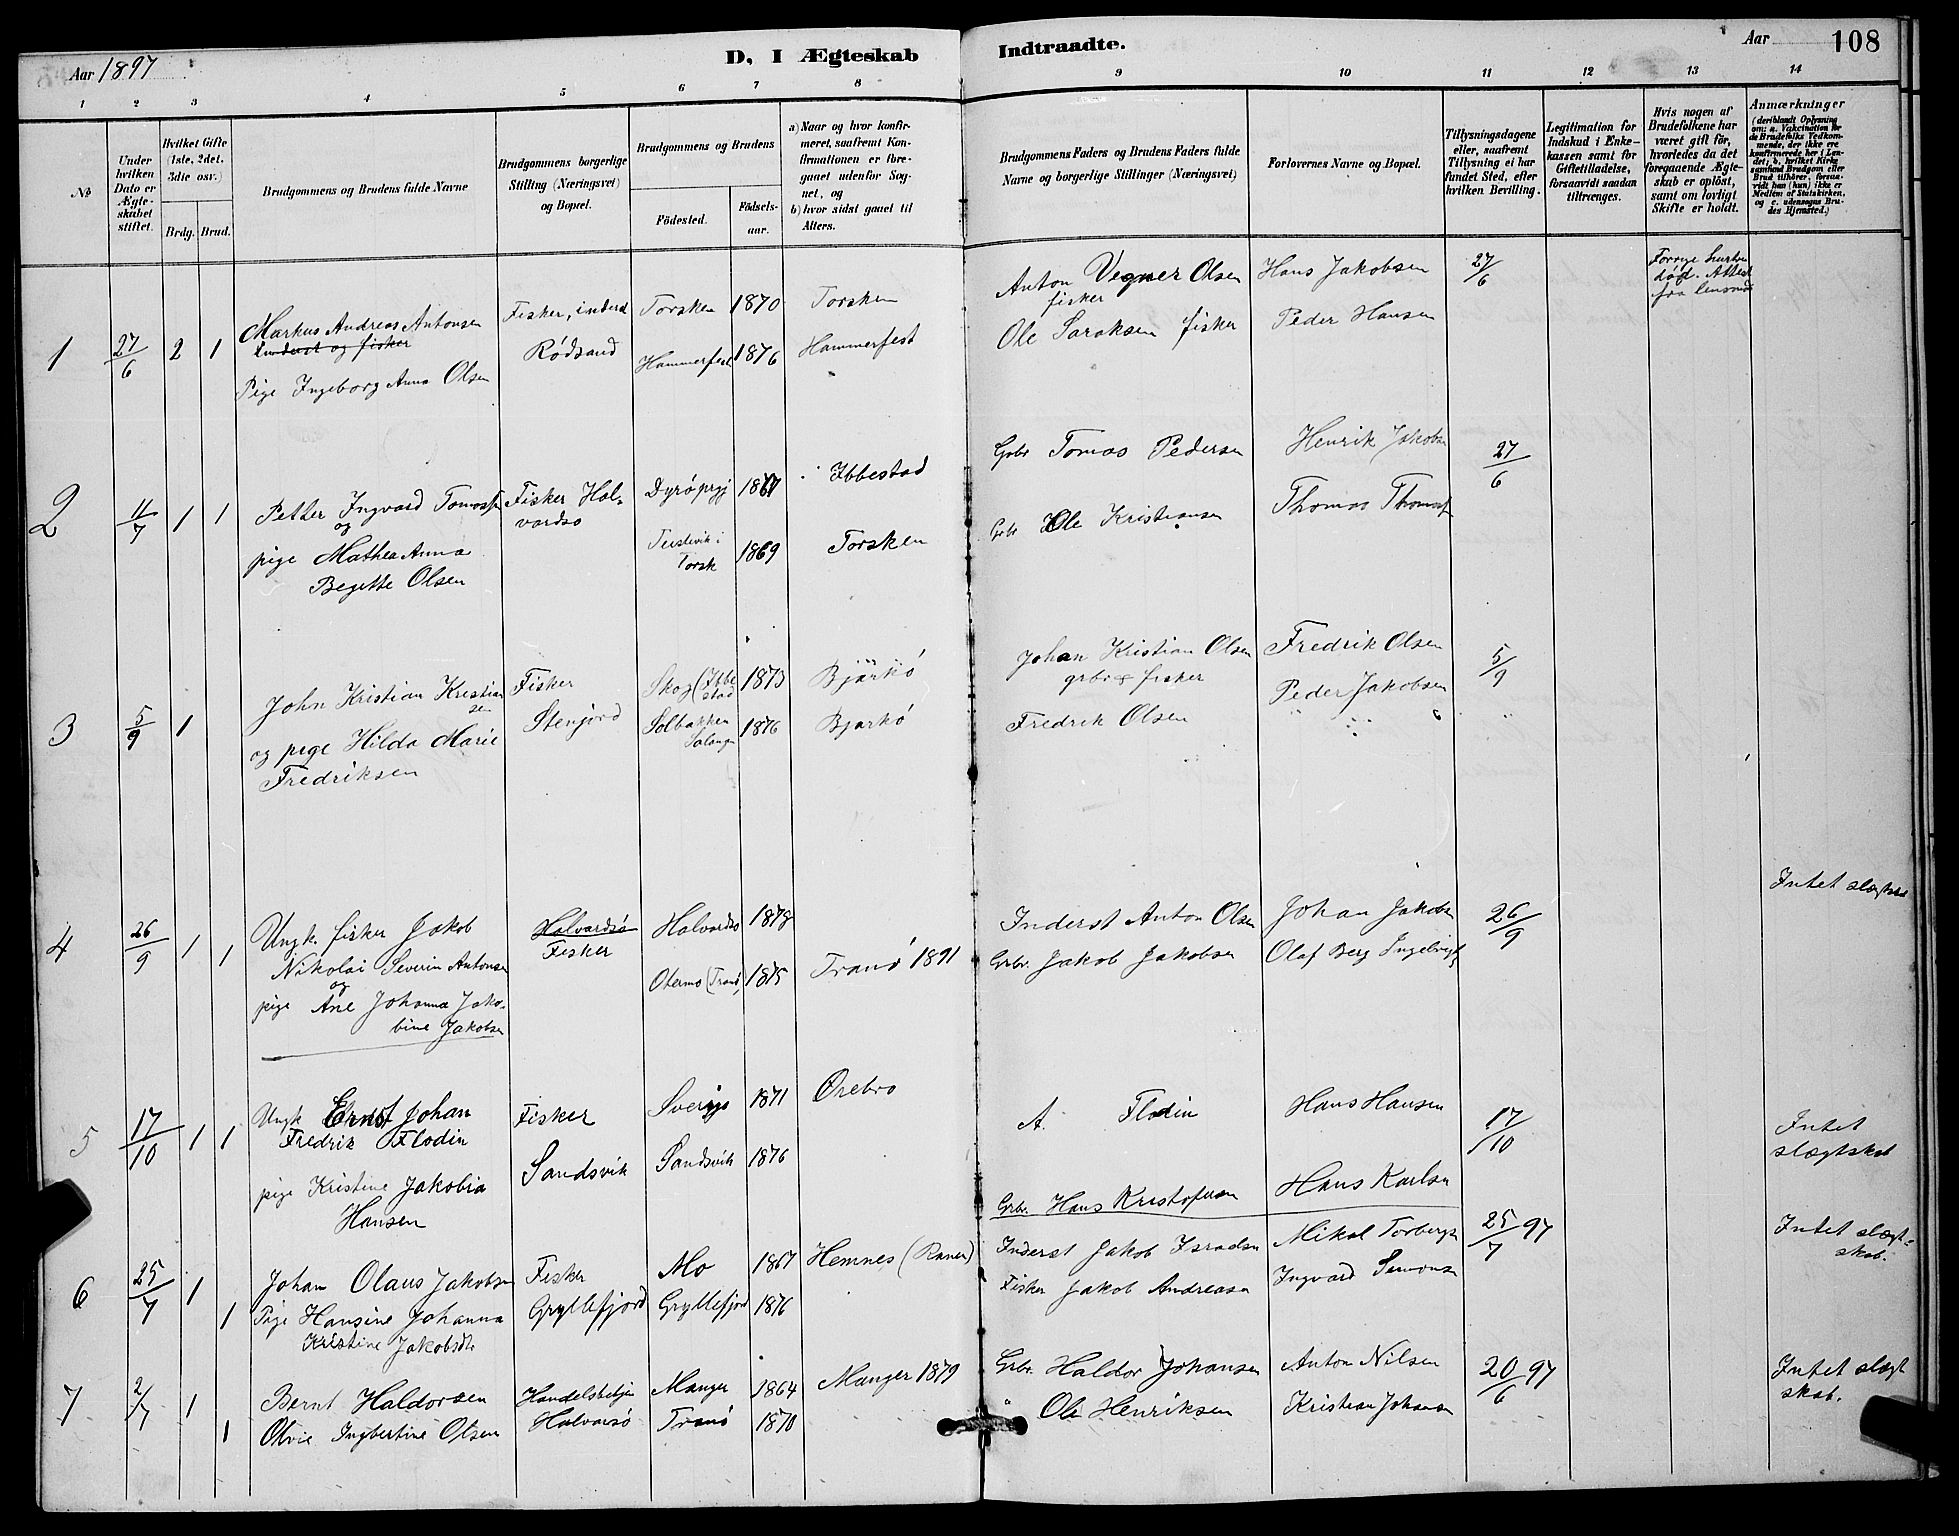 Aar 1897
D. I Ægteskab Indtraadte.
Aar 108
1 2 3 4 5 6 7 8 9 10 11 12 13 14
No
Under hvilken Dato er Ægteskabet stiftet.
Hvilket Gifte (1ste, 2det, 3die osv.)
Brdg. Brud.
Brudgommens og Brudens fulde Navne
Brudgommens borgerlige Stilling (Næringsvei) og Bopæl.
Brudgommens og Brudens
Fødested.
Fødsels-aar.
a) Naar og hvor konfirmeret, saafremt Konfirmationen er foregaaet udenfor Sognet, og
b) hvor sidst gaaet til Alters.
Brudgommens Faders og Brudens Faders fulde Navne og borgerlige Stillinger (Næringsvei)
Forlovernes Navne og Bopæl.
Tillysningsdagene eller, saafremt Tillysning ei har fundet Sted, efter hvilken Bevilling.
Legitimation for Indskud i Enkekassen samt for Giftetilladelse, forsaavidt saadan tiltrænges.
Hvis nogen af Brudefolkene har været gift før, hvorledes da det foregaaende Ægteskab er opløst, samt om lovligt Skifte er holdt.
Anmærkninger (deriblandt Oplysning om: a. Vakcination for de Brudefolks Vedkommende, der ikke ere konfirmerede her i Landet; b. hvilket Kirkesamfund Brudgom eller Brud tilhører, forsaavidt han (hun) ikke er Medlem af Statskirken, og c. udensogns Brudes Hjemsted.)
1 27/6 2 1
Markus Andreas Antonsen
Inderst og fisker
Pige Ingeborg Anna Olsen
Fisker, inderst
Rødsand
Torsken 1870 Torsken
Hammerfest 1876 Hammerfest
Anton Vegner Olsen
fisker
Ole Saraksen fisker
Hans Jakobsen
Peder Hansen
27/6
Forrige hustru
død. Attest
fra lensmd
2 11/7 1 1
Petter Ingvard Tomass.
og
pige Mathea Anna
Begitte Olsen
Fisker Hal-
vardsø
Dyrö prgj 1867 Ibbestad
Teistevik i
Torsk 1869 Torsken
Grbr Tomas Pedersen
Grbr Ole Kristiansen
Henrik Jakobsn
Thomas Thomass.
27/6
3 5/9 1
John Kristian Kristian
sen
og pige Hilda Marie
Fredriksen
Fisker
Stenjord
Skog (Ibbe
stad 1873 Bjärkö
Solbakken
Salangen 1876 Bjarkö
Johan Kristian Olsen
grbr & fisker
Fredrik Olsen
Fredrik Olsen
Peder Jakobsen
5/9
4 26/9 1 1
Ungk. fisker Jakob
Nikolai Severin Antonsen
og
pige Ane Johanna Jako-
bine Jakobsen
Halvardsø
Fisker
Halvardsø 1878
Otermo (Tranø) 1875 Tranø 1891
Inderst Anton Olsen
Grbr. Jakob Jakobsen
Johan Jakobsn
Olaf Berg
26/9
Intet slægtskab
5 17/10 1 1
Ungk Ernst Johan
Fredrik Flodin
pige Kristine Jakobia
Hansen
Fisker
Sandsvik
Sverige 1871 Ørebro
Sandsvik 1876
A. Flodin
Grbr. Hans Kristofersen
Hans Hansen
Hans Karlsen
17/10
Intet
slægtskab
6 25/7 1 1
Johan Olaus Jakobsen
Pige Hansine Johanna
Kristine Jakobsdtr
Fisker
Gryllefjord
Mo 1867 Hemnes (Ranen)
Gryllefjord 1876
Inderst Jakob Israelsn
Fisker Jakob Andreasen
Mikal Torbergs
Ingvard Simonsen
25/7 97
Intet slægt-
skab.
7 2/7 1 1
Bernt Haldorsen
Olvie Ingbertine Olsen
Handelsbetjen
Halvarsö
Manger 1864 Manger 1879
Tranö 1870
Grbr. Haldor Johansen
" Ole Henriksen
Anton Nilsen
Kristian Johansen
20/6 97
Intet slægt
skab.